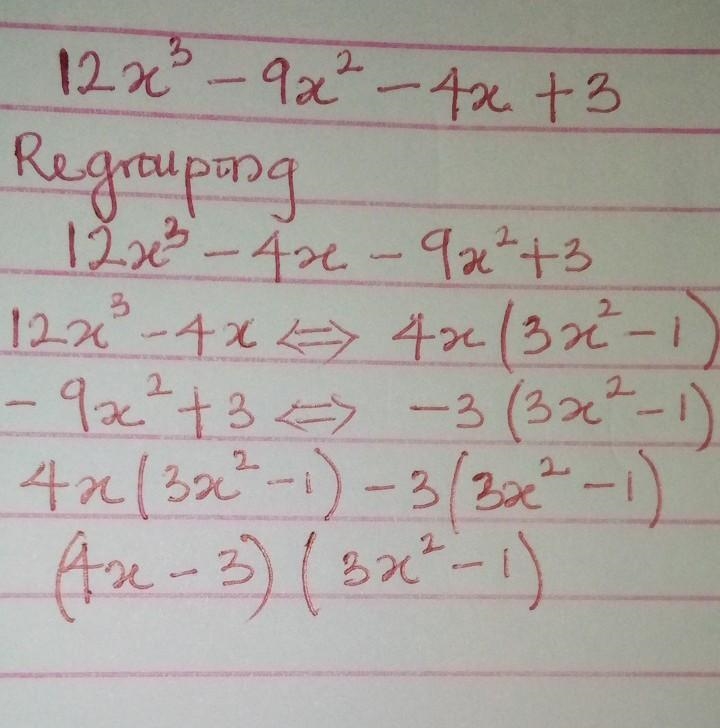 12x³ - 9x² - 4x + 3
Regrouping
12x³ - 4x - 9x² + 3
12x³ - 4x ⇔ 4x(3x² - 1)
- 9x² + 3 ⇔ -3(3x² - 1)
4x(3x² - 1) - 3(3x² - 1)
(4x - 3)(3x² - 1)